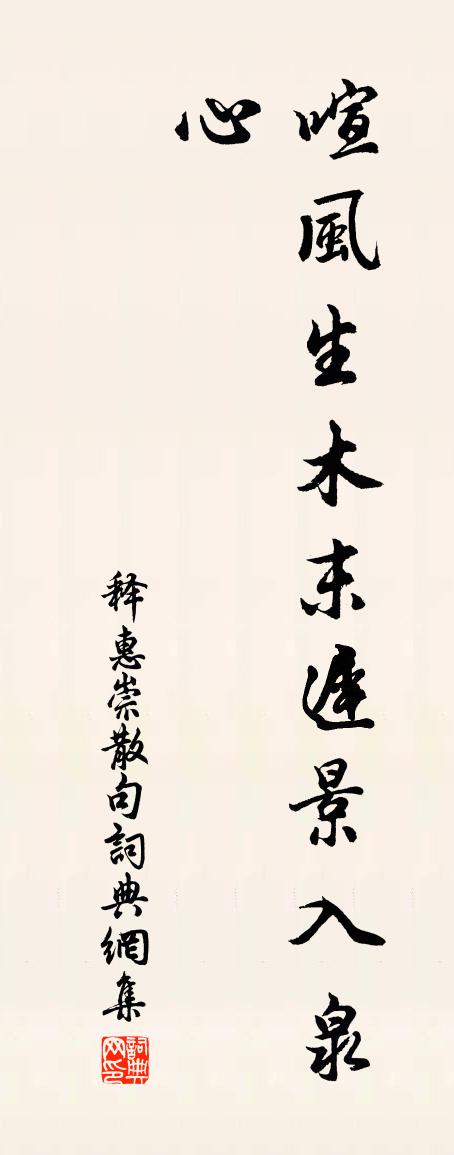 喧風生木末遲景入泉
心
释惠崇散句詞典網集
詞典网印